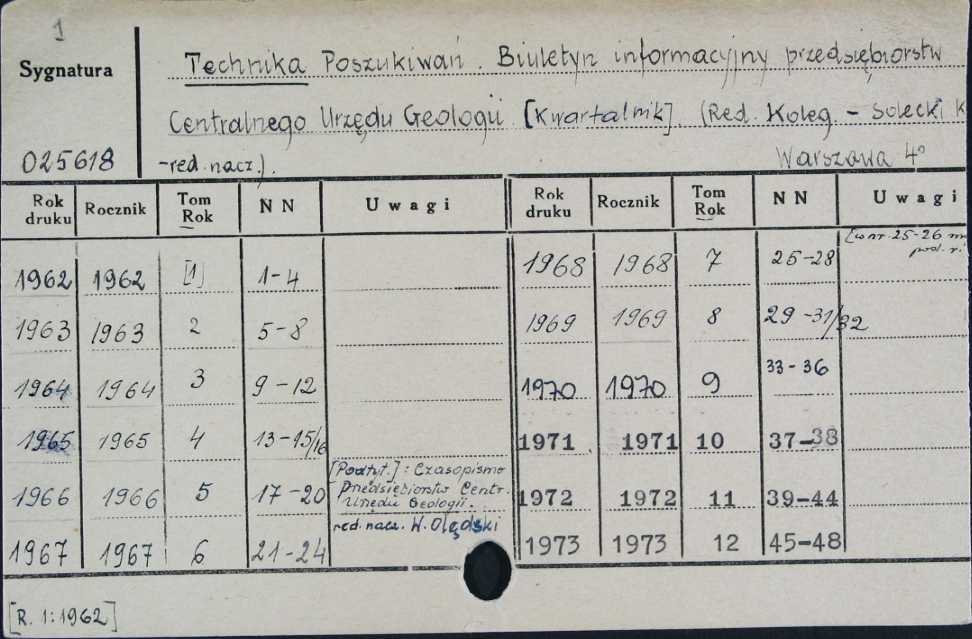 1
Sygnatura
Technika Poszukiwań. Biuletyn informacyjny przedsiębiorstw
Centralnego Urzędu Geologii [Kwartalnik]. (Red. Koleg. - Solecki K
025618
-red. nacz.). Warszawa 4°
Rok druku Rocznik Tom Rok NN Uwagi Rok druku Rocznik Tom Rok NN Uwagi
1962 1962 [1] 1-4 1968 1968 7 25-28 [w nr. 25-26
1963 1963 2 5-8 1969 1969 8 29-31/32
1964 1964 3 9-12 1970 1970 9 33-36
1965 1965 4 13-15/16 1971 1971 10 37-38
1966 1966 5 17-20 [Podtyt.]: Czasopismo
Przedsiębiorstw Centr.
Urzędu Geologii.
red. nacz. W. Olędski
1972 1972 11 39-44
1967 1967 6 21-24 1973 1973 12 45-48
[R. 1:1962]